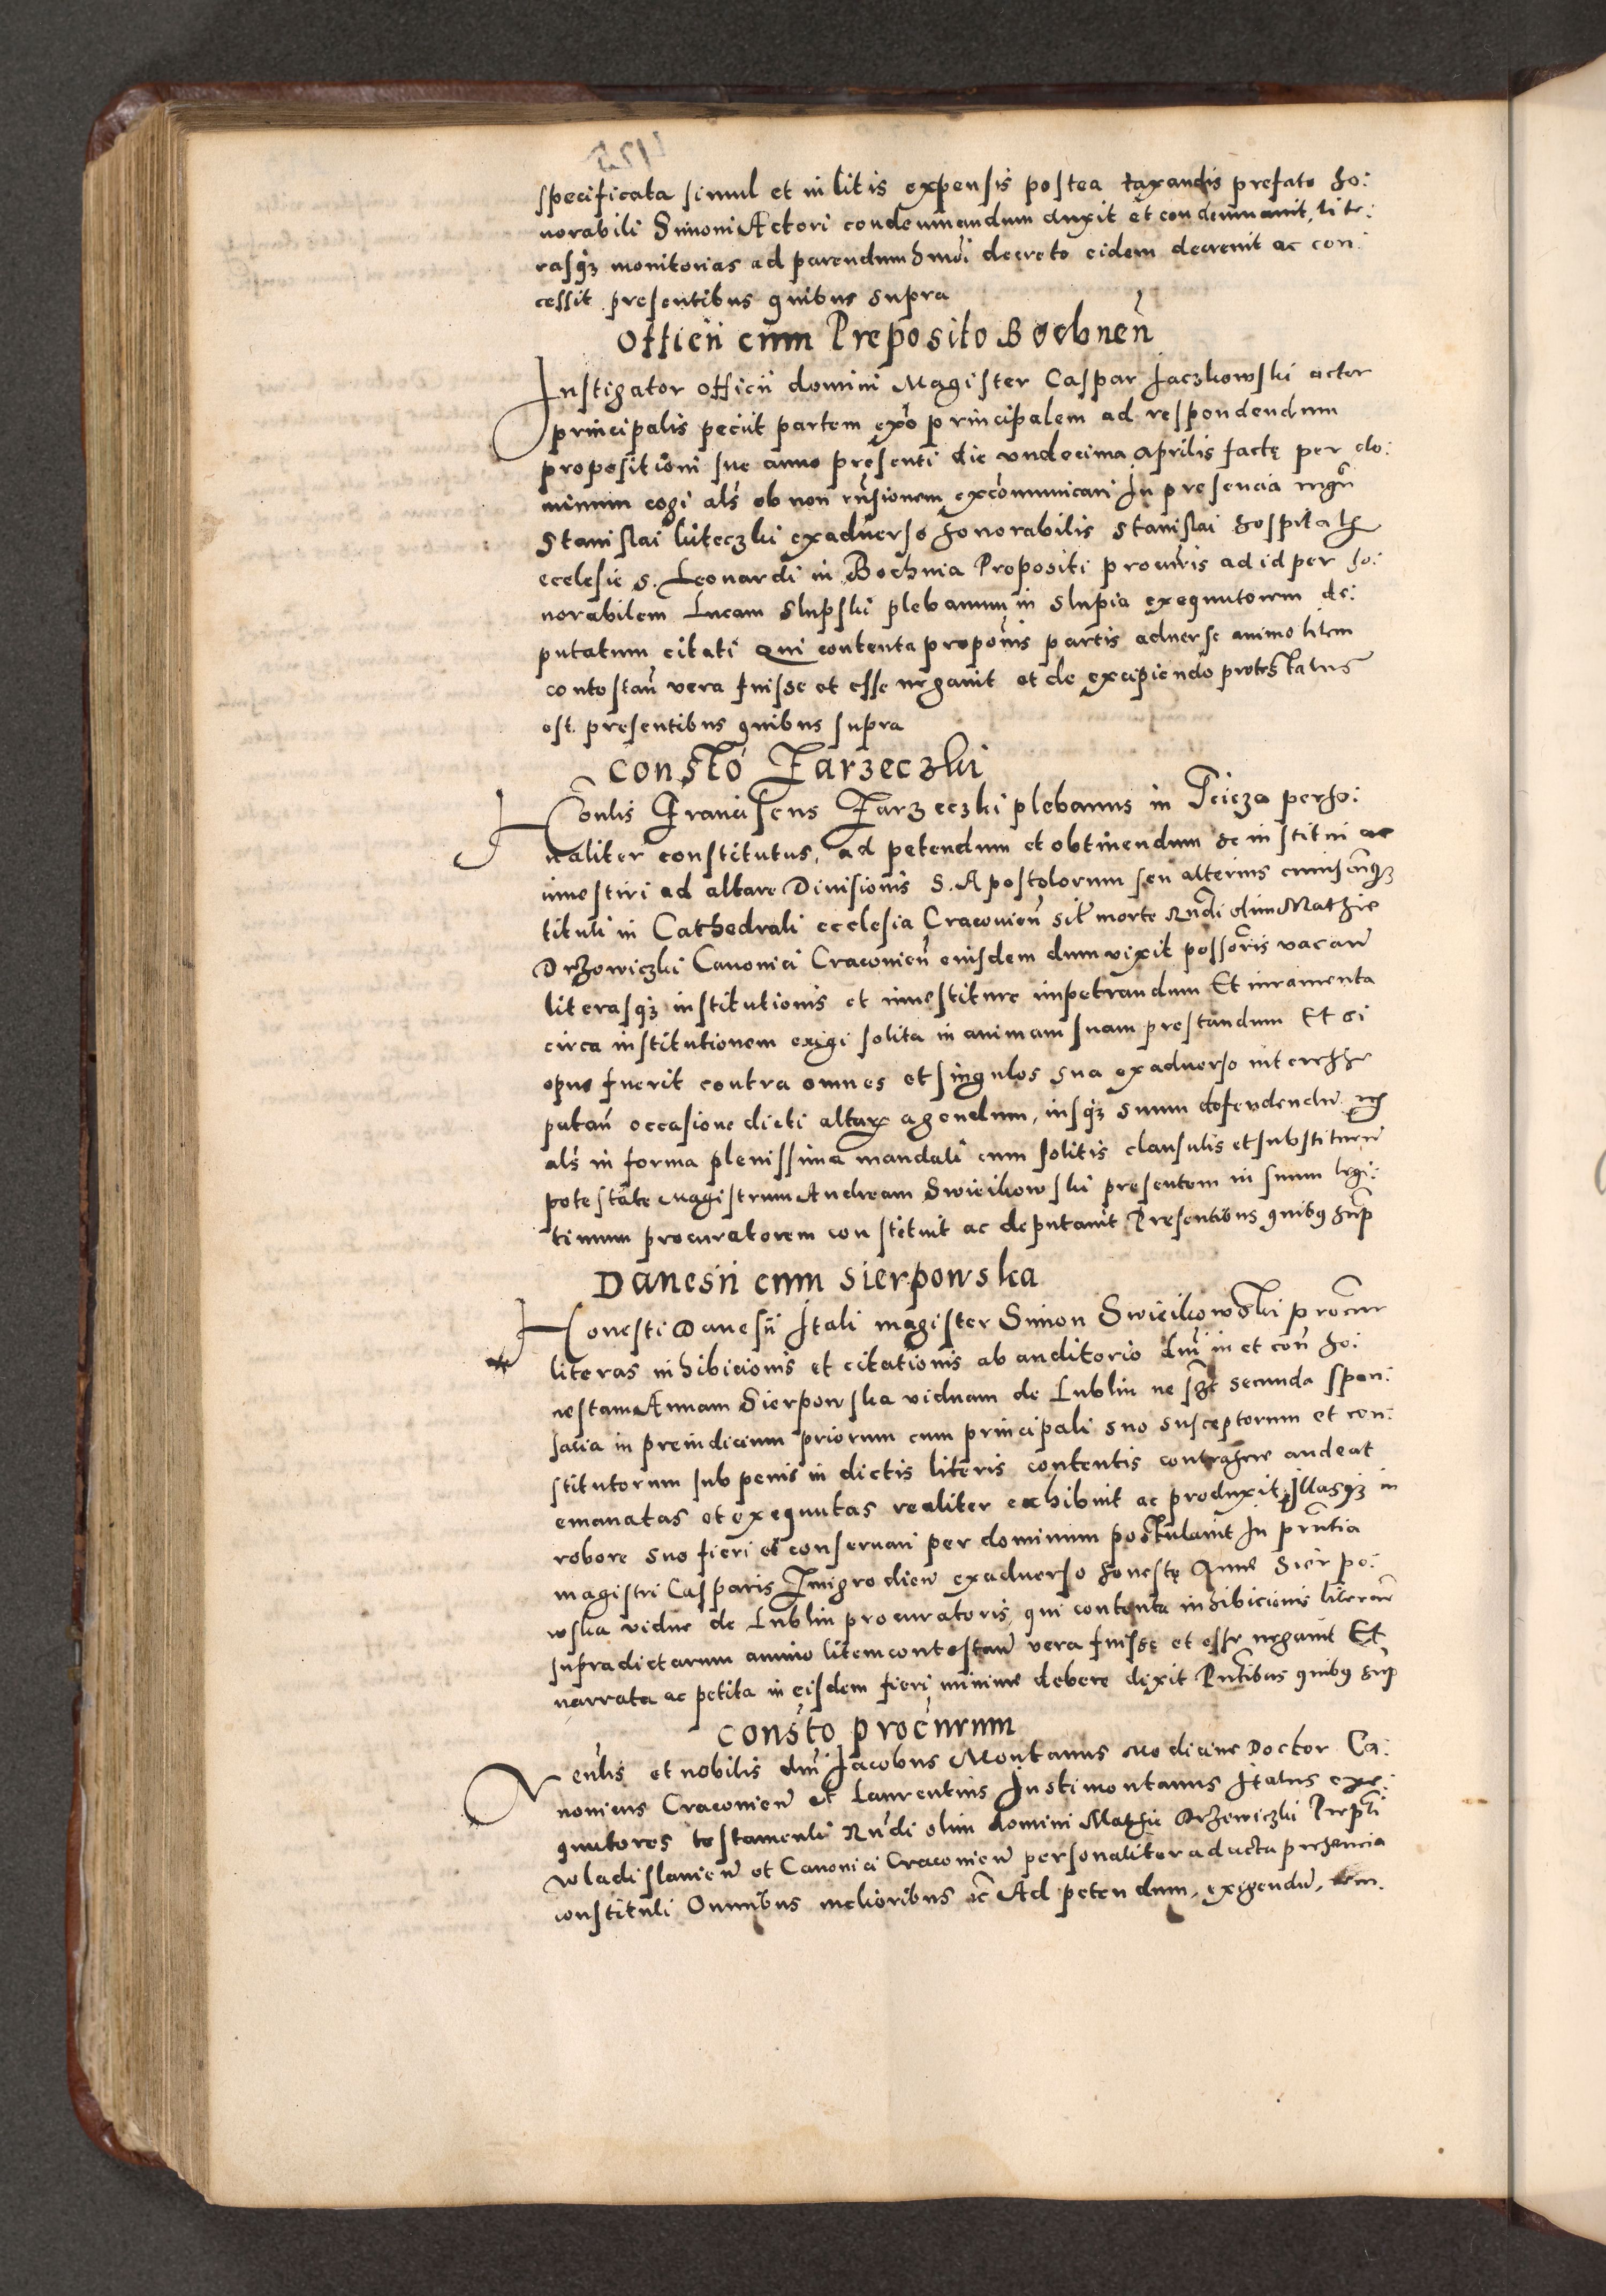 specificata simul et in litis expensis postea taxandis prefato ho:
norabili Simoni Actori condemnandum duxit et condemnauit, lite:
rasq₃ monitorias ad parendum hmõi decreto eidem decreuit ac con:
cessit presentibus quibus supra
Officii cum Preposito Bochneñ
Instigator officii domini Magister Caspar Jaczkowski actor
principalis peciit partem exõ principalem ad respondendum
propositioni sue anno presenti die vndecima Aprilis factę per do:
minum cogi als ob non rñsionem excõmunicari In presencia mgri
Stanislai kiteczki exaduerso honorabilis Stanislai hospitalis
ecclesie S. Leonardi in Bochnia Prepositi procuris ad id per ho:
norabilem Lucam Slupski plebanum in Slupia exequutorem de:
putatum citati Qui contenta proponis partis aduerse animo litem
contestañ vera fuisse et esse negauit et de excipiendo protestatus
est. presentibus quibus supra
Constõ Jarzeczki
Honlis Franciscus Jarzeczki plebanus in Tcicza perso:
naliter constitutus, ad petendum et obtinendum se institui ac
inuestiri ad altare Diuisionis S. Apostolorum seu alterius cuiuscunq₃
tituli in Cathedrali ecclesia Cracouieñ sit morte Rndi olim Mathie
Drzewiczki Canonici Cracouieñ eiusdem dum vixit possoris vacañ
literasq₃ institutionis et inuestiture impetrandum Et iuramenta
circa institutionem exigi solita in animam suam prestandum Et si
opus fuerit contra omnes et singulos sua exaduerso interesse
putañ occasione dicti altaris agendum, iusq₃ suum defendendũ
als in forma plenissima mandati cum solitis clausulis et substitueñ
potestate Magistrum Andream Swieikowski presentem in suum legi:
timum procuratorem constituit ac deputauit Presentibus quibus sup
Danesii cum Sierpowska
Honesti Danesii Itali magister Simon Swieikowski procur
literas inhibicionis et citationis ab auditorio dni in et con ho:
nestam Annam Sierpowska viduam de Lublin ne secunda spon:
salia in preiudicium priorum cum principali suo susceptorum et con:
stitutorum sub penis in dictis literis contentis contrahere audeat
emanatas et exequutas realiter exhibuit ac produxit, Illasq₃ in
robore suo fieri et conseruari per dominum postulauit In pñtia
magistri Casparis Jmigrodieñ exaduerso honestę Anne Sierpo:
wska vidue de Lublin procuratoris, qui contenta inhibicionis literarũ
supradictarum animo litem contestañ vera fuisse et esse negauit Et
narrata ac petita in eisdem fieri minime debere dixit Pntibus quibus sup
Constõ procurum
Venlis et nobilis dni Jacobus Montanus Medicine Doctor Ca:
nonicus Cracouieñ et Laurentius Justimontanus Italus exe:
quutores testamenti Rndi olim domini Mathie Drzewiczki Prepti
Wladislauieñ et Canonici Cracouieñ personaliter ad acta presencia
constituti Omnibus melioribus &c Ad petendum, exigendũ,